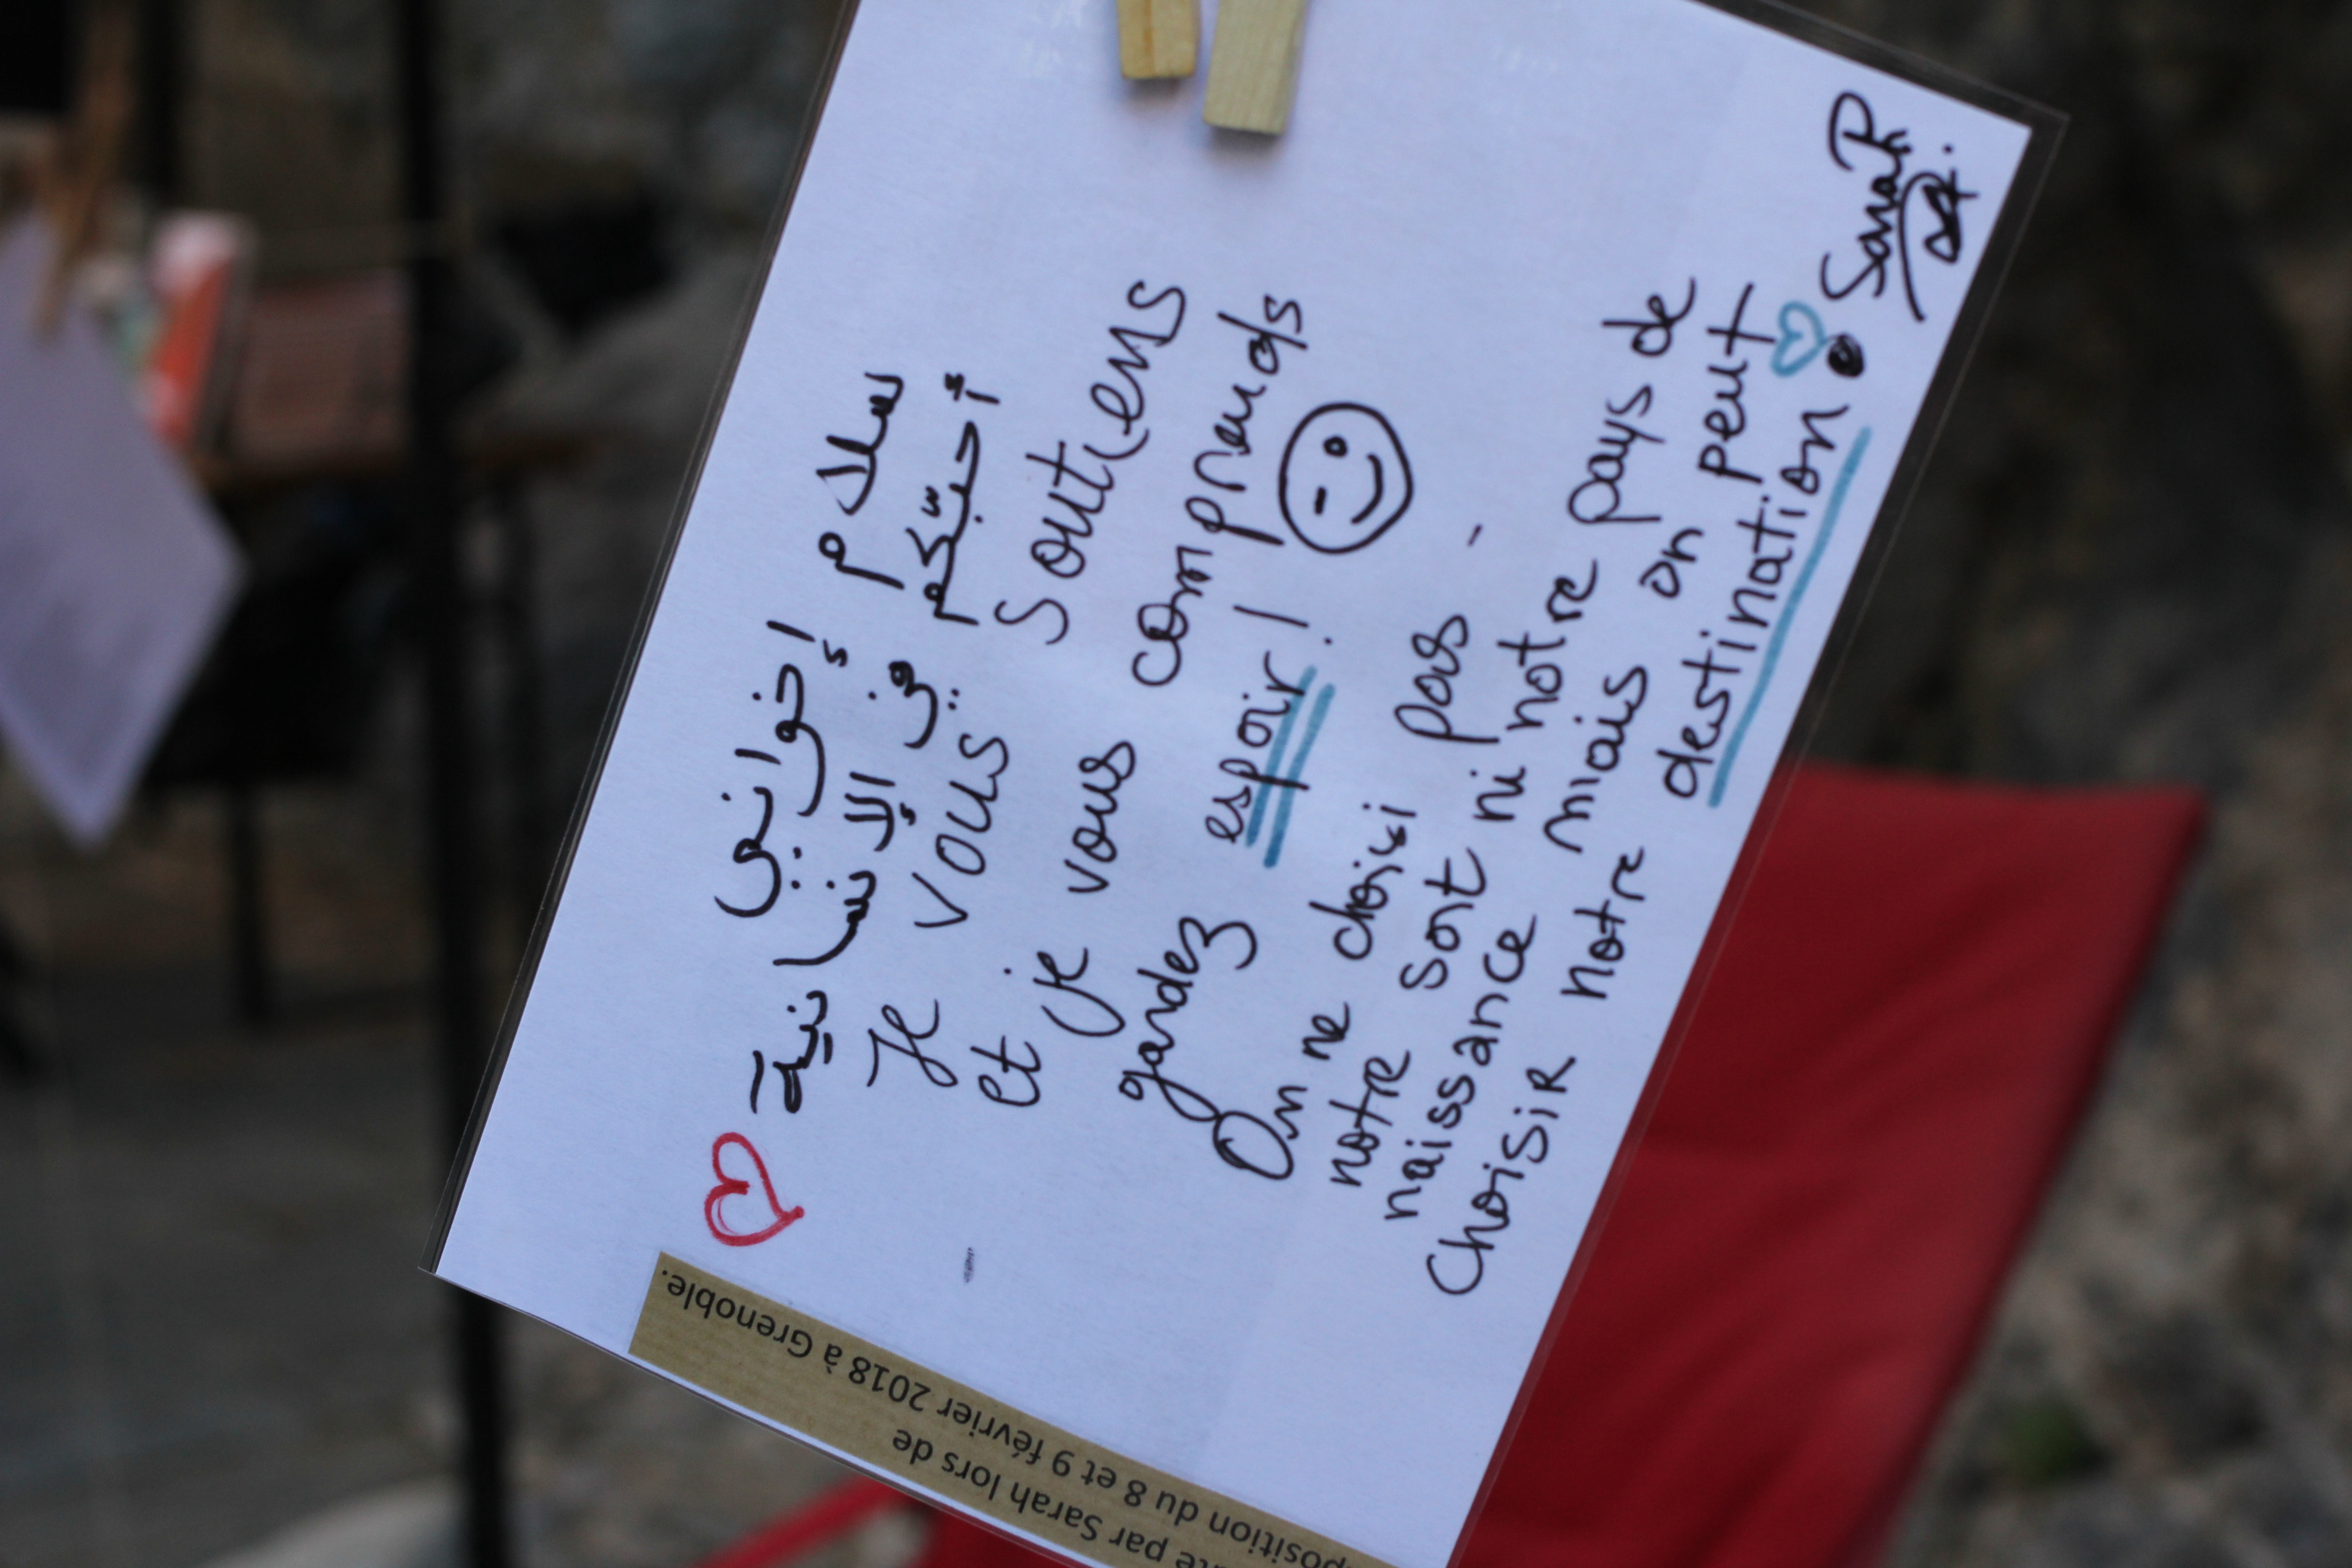 سلام إخواني
أحبّكم في الإنسانية
Je vous soutiens
et je vous comprends
gardez espoir!
On ne choisi pas -
notre sort ni notre pays de
naissance mais on peut
choisir notre destination
Sarah
par Sarah lors de
position du 8 et 9 février 2018 à Grenoble.